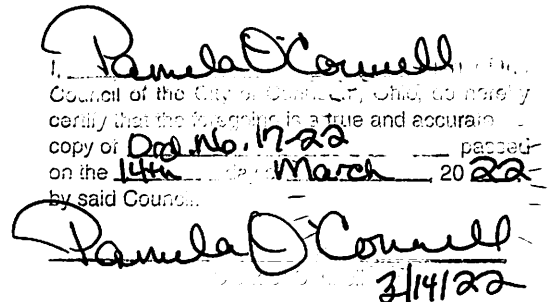 I, Pamela O'Connell
Council of the City of Ohio, do hereby
certify that the foregoing is a true and accurate
copy of Ord. No. 17-22 passed
on the 14th day of March, 2022
by said Council.
Pamela O'Connell
3/14/22